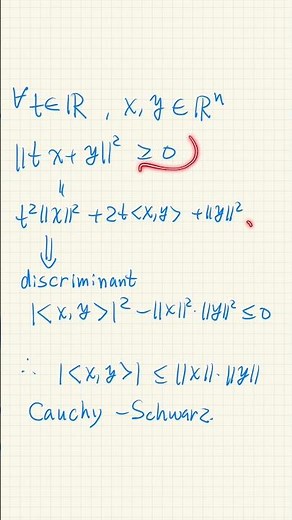 ∀t∈ℝ, x,y∈ℝⁿ
||tx+y||² ≥0
"
t²||x||²+2t<x,y>+||y||²
⇓
discriminant
|<x,y>|²-||x||²·||y||²≤0
∴ |<x,y>|≤||x||·||y||
Cauchy-Schwarz.